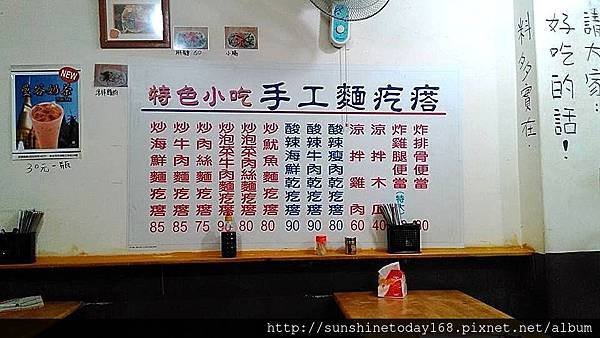 特色小吃 手工麵疙瘩
炒海鮮麵疙瘩 85
炒牛肉麵疙瘩 85
炒肉絲麵疙瘩 75
炒泡菜牛肉麵疙瘩 90
炒泡菜肉絲麵疙瘩 80
炒魷魚麵疙瘩 80
酸辣海鮮乾疙瘩 90
酸辣牛肉乾疙瘩 90
酸辣瘦肉乾疙瘩 80
涼拌雞肉 60
涼拌木瓜 40
炸雞腿便當
炸排骨便當 80
請大家:
好吃的話!
料多實在
NEW
曼谷奶茶
30元一瓶
http://sunshinetoday168.pixnet.net/album